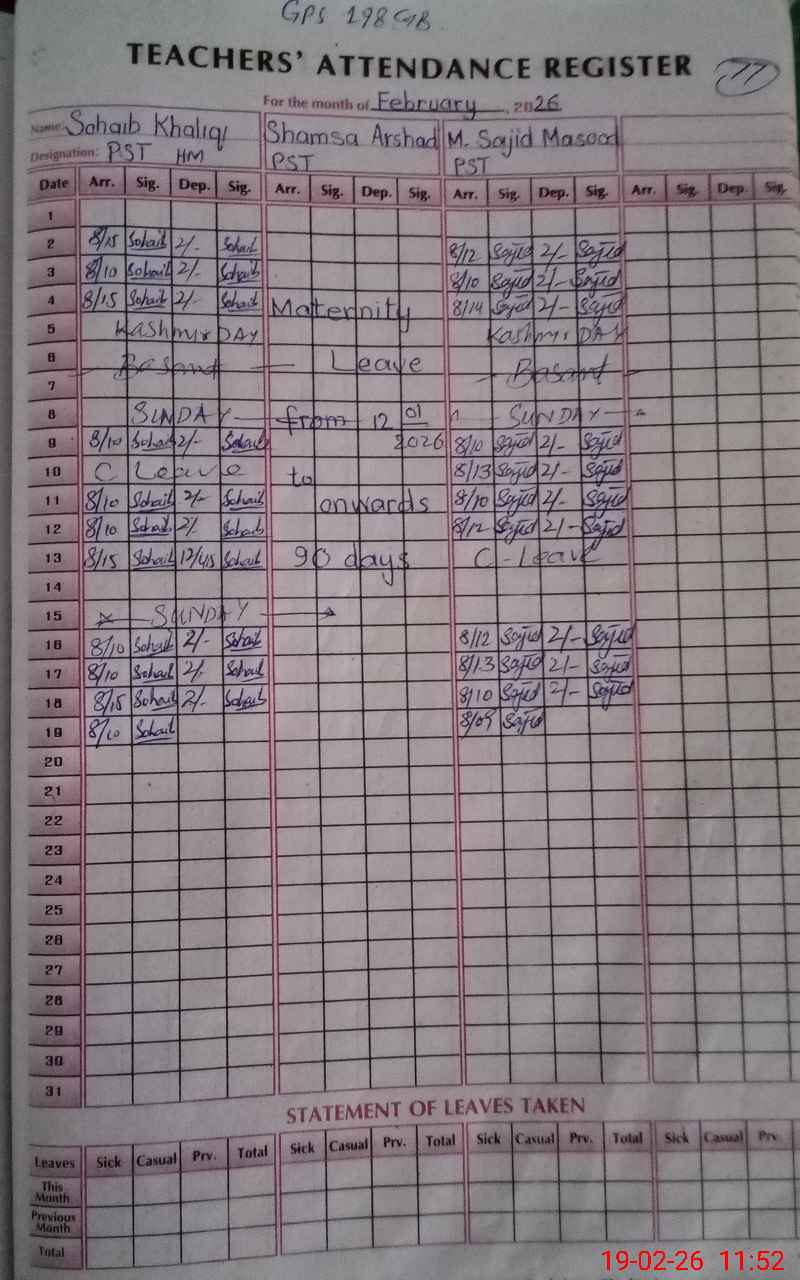 GPS 198 GB
TEACHERS' ATTENDANCE REGISTER
77
For the month of February, 2026
Name: Sohaib Khaliq Shamsa Arshad M. Sajid Masood
Designation: PST HM PST PST
Date Arr. Sig. Dep. Sig. Arr. Sig. Dep. Sig. Arr. Sig. Dep. Sig. Arr. Sig. Dep. Sig.
1
2 8/15 Sohaib 2/- Sohaib 8/12 Sajid 2/- Sajid
3 8/10 Sohaib 2/- Sohaib 8/10 Sajid 2/- Sajid
4 8/15 Sohaib 2/- Sohaib Maternity 8/14 Sajid 2/- Sajid
5 Kashmir DAY Kashmir DAY
6 Basant Leave Basant
7
8 SUNDAY from 12 01 SUNDAY
9 8/10 Sohaib 2/- Sohaib 2026 8/10 Sajid 2/- Sajid
10 C Leave to 8/13 Sajid 2/- Sajid
11 8/10 Sohaib 2/- Sohaib onwards 8/10 Sajid 2/- Sajid
12 8/10 Sohaib 2/. Sohaib 8/12 Sajid 2/- Sajid
13 8/15 Sohaib 12/45 Sohaib 90 days C-Leave
14
15 SUNDAY
16 8/10 Sohaib 2/- Sohaib 8/12 Sajid 2/- Sajid
17 8/10 Sohaib 2/. Sohaib 8/13 Sajid 2/- Sajid
18 8/15 Sohaib 2/- Sohaib 8/10 Sajid 2/- Sajid
19 8/10 Sohaib 8/09 Sajid
20
21
22
23
24
25
26
27
28
29
30
31
STATEMENT OF LEAVES TAKEN
Leaves Sick Casual Prv. Total Sick Casual Prv. Total Sick Casual Prv. Total Sick Casual Prv.
This Month
Previous Month
Total
19-02-26 11:52